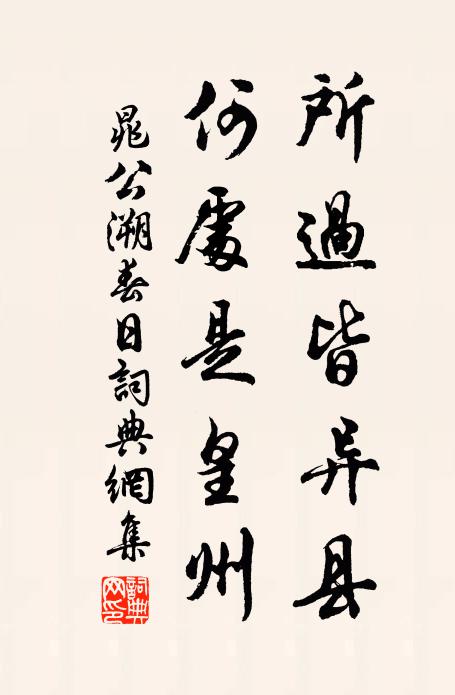 所過皆异县
何處是皇州
晁公溯春日詞典網集
詞典网印